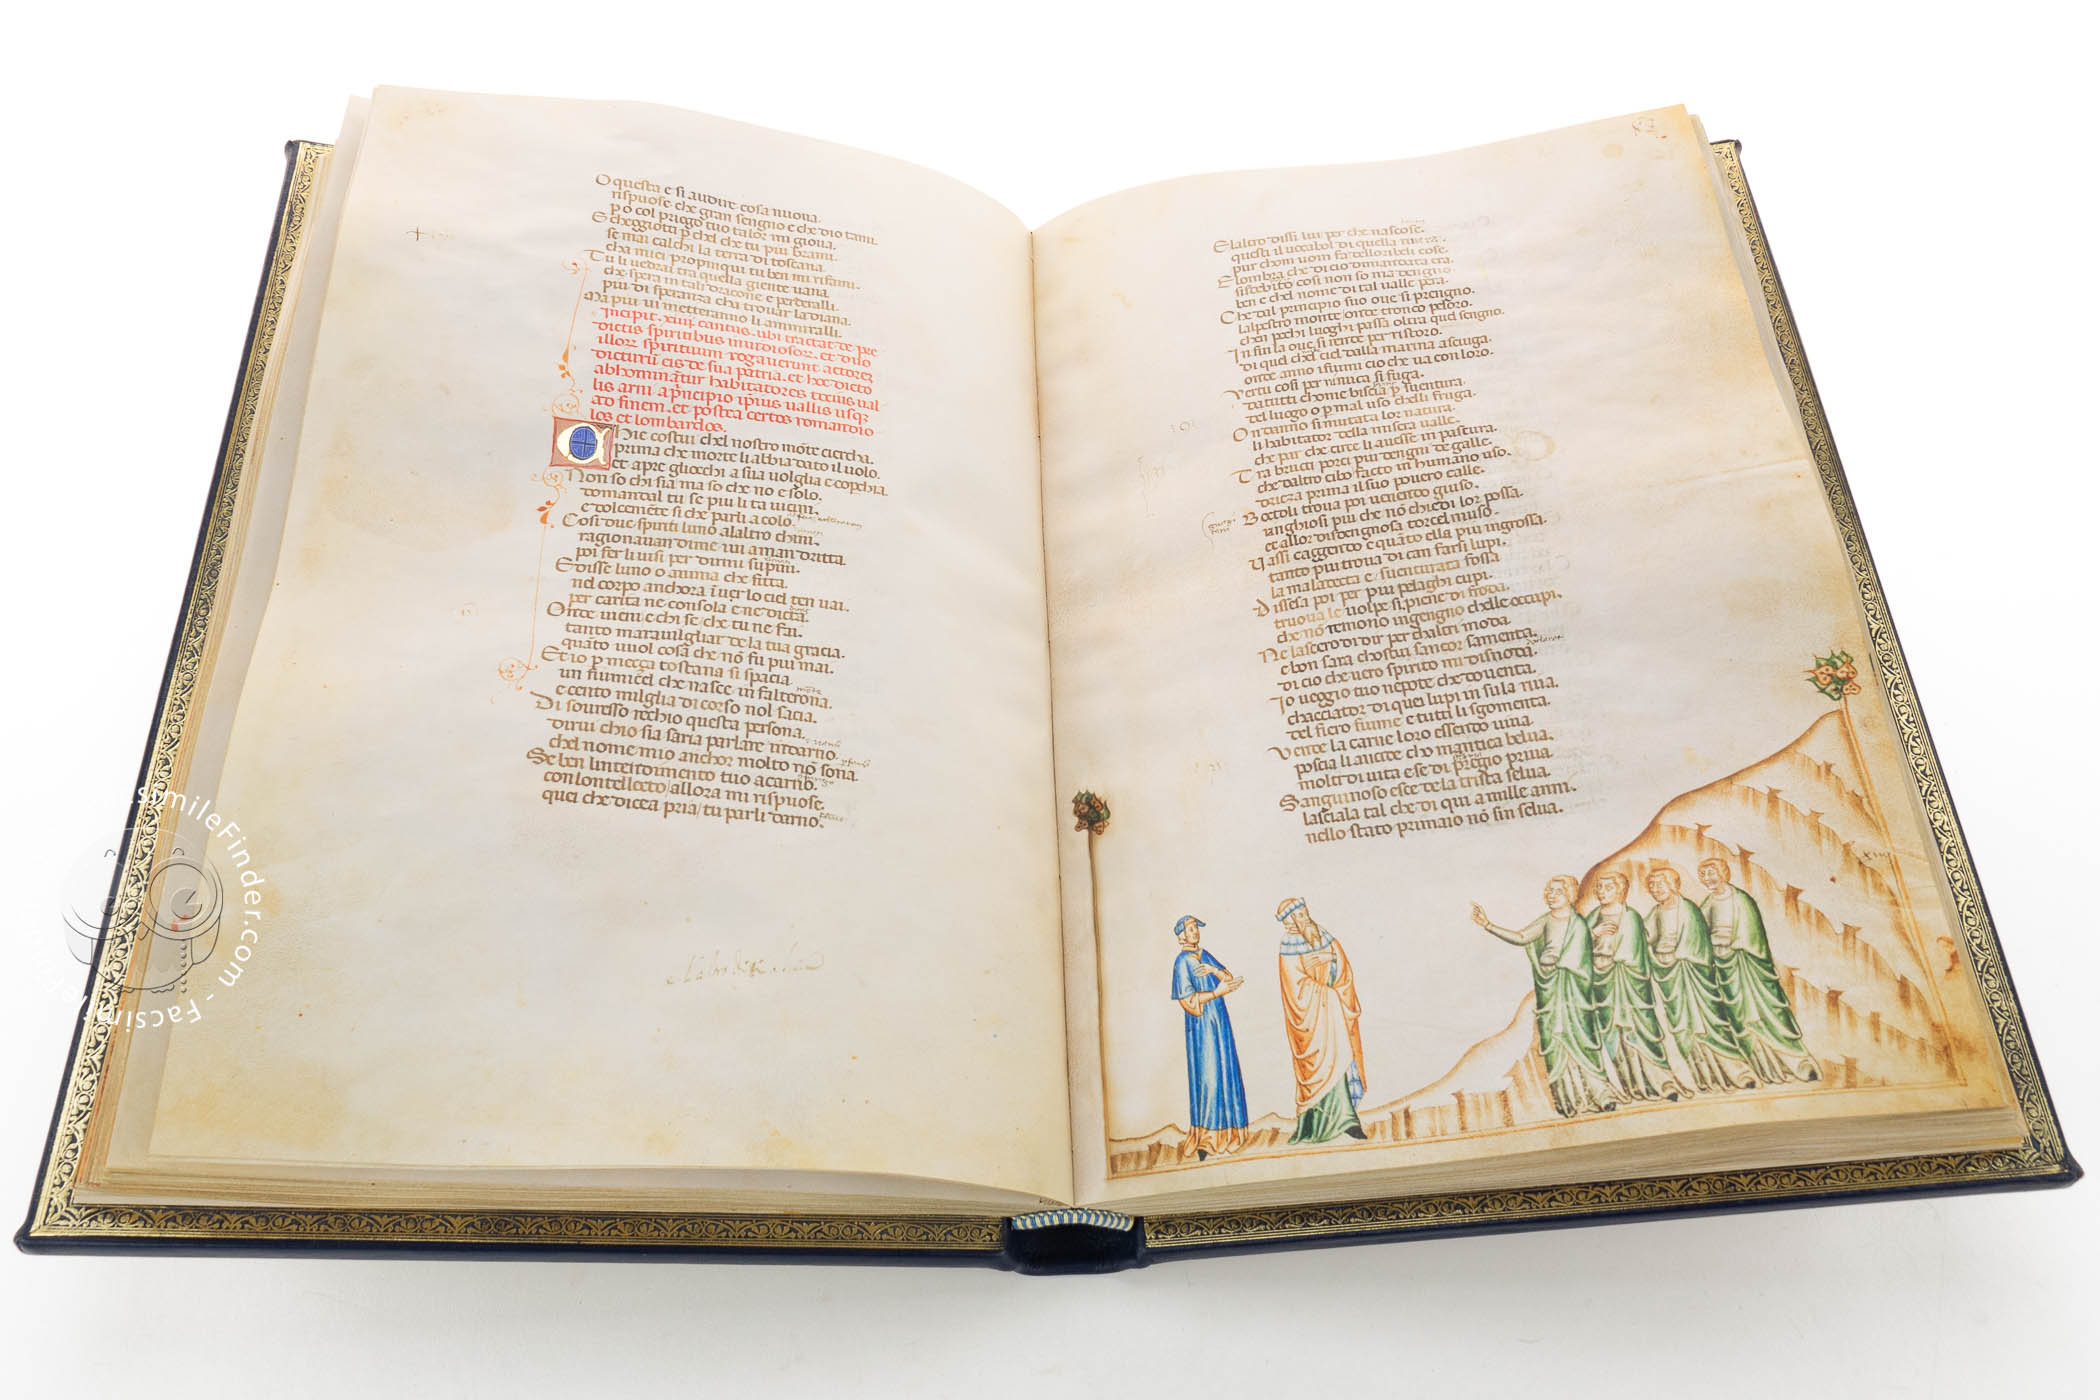 O questa e si audire cosa nuova.
rispuose che gran sengno e che dio tami.
p̄o col priego tuo talor mi giova.
E cheggioti p̄ chel che tu piu brami.
se mai calchi la terra di toscana.
cha miei propinqui tu ben mi rifami.
Tu li vedrai tra quella giente vana
che spera in talidracone e perderalli.
piu di speranza cha trovar la diana.
Ma piu vi metteranno li ammiralli.
Incipit xiiij cantus ubi tractat de pre
dictis spiritibus invidiosor et duo
illor spirituum rogaverunt actorez
dicturū eis de sua patria et hoc dicto
abhominātur habitatores totius val
lis arni a pncipio ipius vallis usqz
ad finem et postea certos romandio
los et lombardos.
Chie costui chel nostro mōte cierchia.
prima che morte li abbia dato il volo.
et apre gliocchi a sua volglia e copchia.
Non so chi sia ma so che no e solo.
domandal tu se piu li ta vicini.
e dolcemēte si che parli acolo.
Cosi due spiriti luno alaltro chini.
ragionavan dime ivi aman dritta.
poi fer livisi per dirmi supini.
E disse luno o anima che fitta.
nel corpo anchora īver lo ciel ten vai.
per carita ne consola e ne dicta.
Onde vieni e chi se che tu ne fai.
tanto maravilgliar de la tua gracia.
quāto vuol cosa che nō fu piu mai.
Et io p̄ meçça toscana si spacia
un fiumicel che nasce in falterona.
e cento milglia di corso nol sacia.
Di sovresso rechio questa persona.
dirvi chio sia saria parlare indarno.
chel nome mio anchor molto nō sona.
Se ben lintendimento tuo acarno.
conlontellecto allora mi rispuose.
quei che dicea pria tu parli darno.
82
Elaltro dissi lui per che nascose.
questi il vocabol di quella rivera.
pur chom uom fa dellorribeli cose.
E lombra che di cio dimandata era.
sisdebito cosi non so ma dengno
ben e chel nome di tal valle pera.
Che dal principio suo ove si prengno.
lalpestro monte onde tronco peloro.
chen pochi luoghi passa oltra quel sengno.
In fin la ove si rende per ristoro.
di quel chel ciel dalla marina asciuga.
onde anno ifiumi cio che va con loro.
Vertu cosi per nimica si fuga.
datutti chome biscia p̄ sventura.
del luogo o p̄ mal uso chelli fruga.
Ondanno si mutata lor natura.
li habitator della misera valle.
che par che circe li avesse in pastura.
Tra brutti porci piu dengni de galle.
che daltro cibo facto in humano uso.
dricza prima il suo povero calle.
Bottoli trova poi venendo giuso.
ringhiosi piu che nō chiedi lor possa.
et allor disdengnosa torcel muso.
Vassi caggendo e quāto ella piu ingrossa.
tanto piu trova di can farsi lupi.
la maladecta e sventurata fossa
Dissesa poi per piu pelaghi cupi.
truova le volpe si piene di froda.
che nō temono ingengno chelle occupi.
Ne lascero di dir per chaltri moda
e bon sara chostui sancor samenta.
di cio che vero spirito mi disnoda.
Io veggio tuo nepote che doventa.
chacciator di quei lupi in sula riva.
del fiero fiume e tutti li sgomenta.
Vende la carne loro essendo viva.
poscia li ancide cho mantica belva.
molti di vita e se di pregio priva.
Sanguinoso esce dela trista selva.
lasciala tal che di qui a mille anni.
nello stato primaio nō sin selva.
xiiij
FacsimileFinder.com - Facsimi